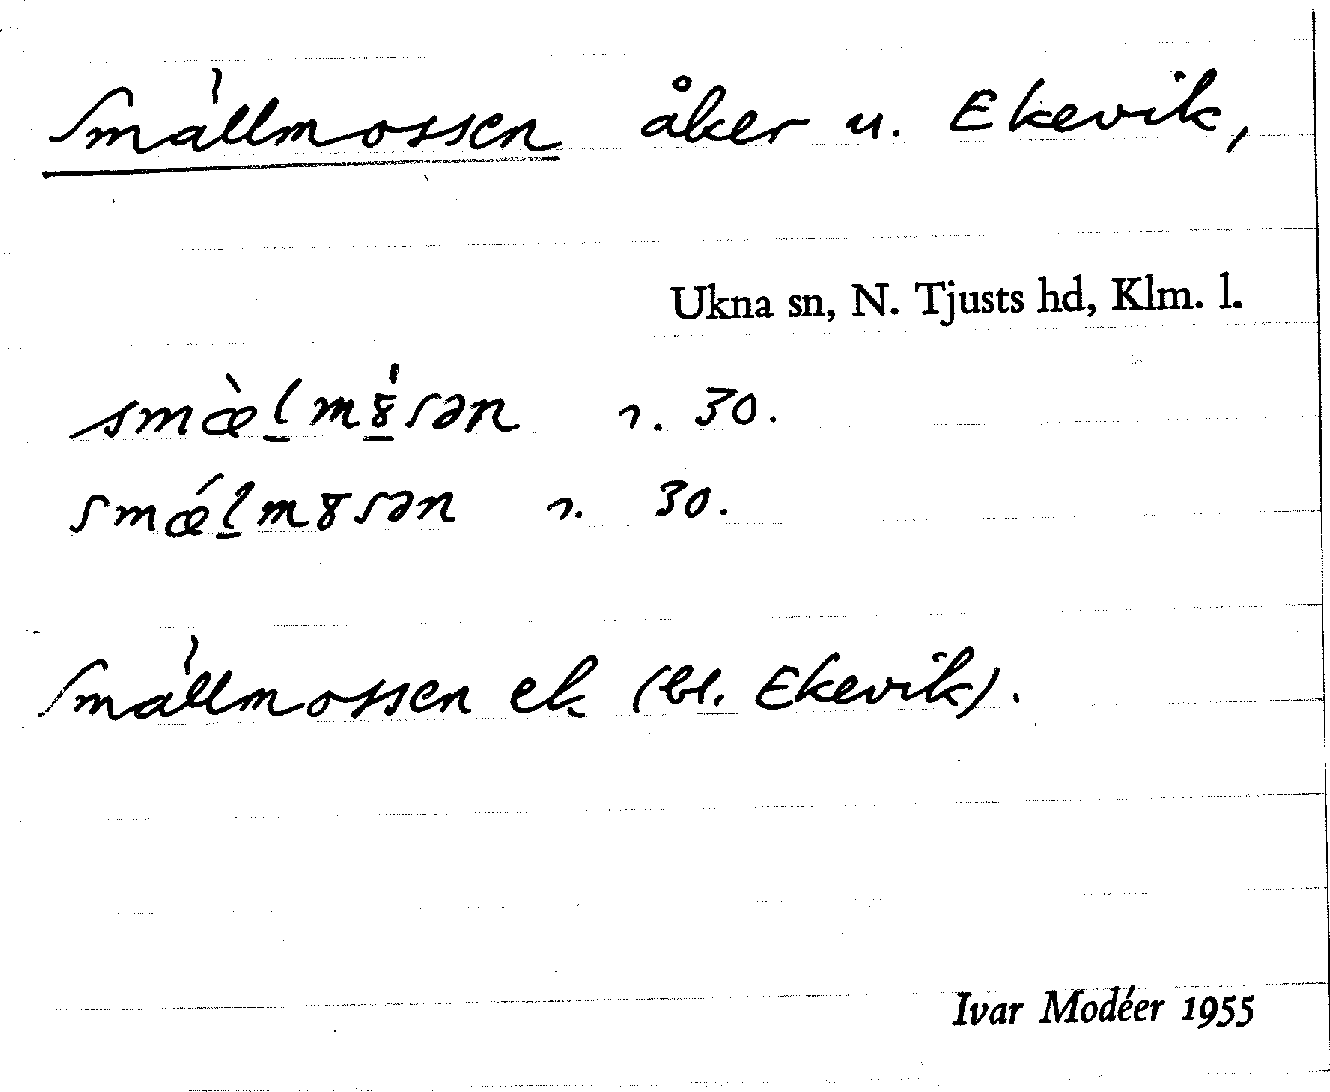 Smällmossen åker u. Ekevik,
Ukna sn, N. Tjusts hd, Klm. l.
smæ̀l̠mȣ̠́sən r. 30.
smǽl̠mȣsən r. 30.
Smällmossen ek (bl. Ekevik).
Ivar Modéer 1955